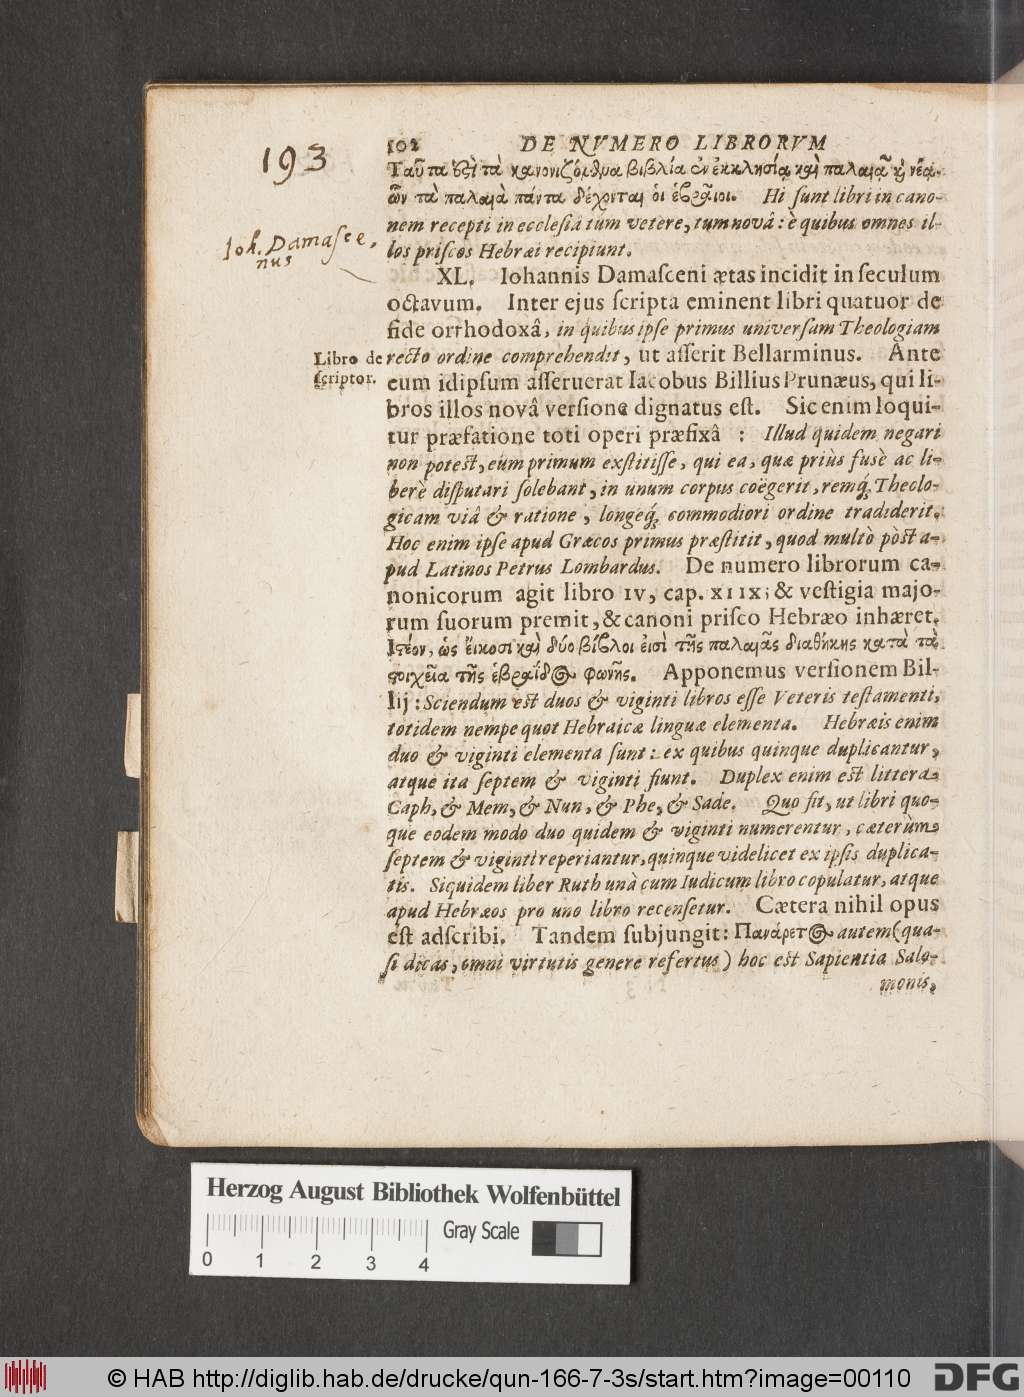 193
102 DE NVMERO LIBRORVM
Ταῦτα ἐςὶ τὰ κανονιζόμϑμα βιβλία ἐν ἐκκλησίᾳ, καὶ παλαιᾷ κỳ νέᾳ·
ὧν τὰ παλαιὰ πάντα δέχονται ὁι ἑβραῖοι. Hi ſunt libri in cano-
nem recepti in eccleſiâ tum vetere, tum novâ: è quibus omnes il-
los priſcos Hebræi recipiunt.
Joh. Damaſce,
nus
XL. Iohannis Damaſceni ætas incidit in ſeculum
octavum. Inter ejus ſcripta eminent libri quatuor de
fide orthodoxâ, in quibus ipſe primus univerſam Theologiam
Libro de
ſcriptor.
recto ordine comprehendit, ut aſſerit Bellarminus. Ante
eum idipſum aſſeruerat Iacobus Billius Prunæus, qui li-
bros illos novâ verſione dignatus eſt. Sic enim loqui-
tur præfatione toti operi præfixâ : Illud quidem negari
non poteſt, eum primum exſtitiſſe, qui ea, quæ priùs fusè ac li-
berè diſputari ſolebant, in unum corpus coëgerit, remq́; Theolo-
gicam viâ & ratione, longeq́; commodiori ordine tradiderit.
Hoc enim ipſe apud Græcos primus præſtitit, quod multò pòst a-
pud Latinos Petrus Lombardus. De numero librorum ca-
nonicorum agit libro IV, cap. XIIX; & veſtigia majo-
rum ſuorum premit, & canoni priſco Hebræo inhæret.
Ἰςέον, ὡς ἔικοσι καὶ δύο βίβλοι ἐισὶ τῆς παλαιᾶς διαθήκης κατὰ τὰ
ςοιχεῖα τῆς ἑβραΐδος φωνῆς. Apponemus verſionem Bil-
lij: Sciendum est duos & viginti libros eſſe Veteris teſtamenti,
totidem nempe quot Hebraicæ linguæ elementa. Hebræis enim
duo & viginti elementa ſunt: ex quibus quinque duplicantur,
atque ita ſeptem & viginti fiunt. Duplex enim est littera
Caph, & Mem, & Nun, & Phe, & Sade. Quo fit, ut libri quo-
que eodem modo duo quidem & viginti numerentur, cæterùm
ſeptem & viginti reperiantur, quinque videlicet ex ipſis duplica-
tis. Siquidem liber Ruth unà cum Iudicum libro copulatur, atque
apud Hebræos pro uno libro recenſetur. Cætera nihil opus
eſt adſcribi. Tandem ſubjungit: Πανάρετος autem (qua-
ſi dicas, omni virtutis genere refertus) hoc est Sapientia Salo-
monis,
Herzog August Bibliothek Wolfenbüttel
Gray Scale
0 1 2 3 4
© HAB http://diglib.hab.de/drucke/qun-166-7-3s/start.htm?image=00110
DFG